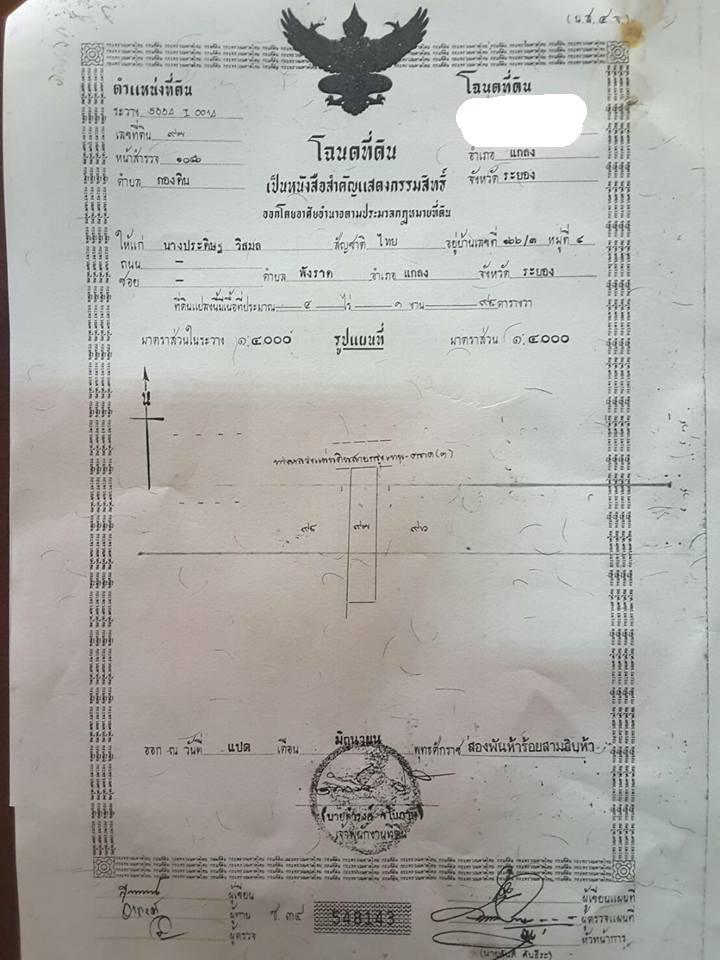 (น.ส. ๔ จ.)
ตำแหน่งที่ดิน
ระวาง
เลขที่ดิน ๙๗
หน้าสำรวจ ๑๐๘๖
ตำบล กองดิน
โฉนดที่ดิน
อำเภอ แกลง
จังหวัด ระยอง
โฉนดที่ดิน
เป็นหนังสือสำคัญแสดงกรรมสิทธิ์
ออกโดยอาศัยอำนาจตามประมวลกฎหมายที่ดิน
ให้แก่ นางประดิษฐ วิสมล สัญชาติ ไทย อยู่บ้านเลขที่ ๑๖๖/๓ หมู่ที่ ๔
ถนน –
ซอย – ตำบล พังราด อำเภอ แกลง จังหวัด ระยอง
ที่ดินแปลงนี้มีเนื้อที่ประมาณ ๔ ไร่ ๓ งาน ตารางวา
มาตราส่วนในระวาง ๑:๔๐๐๐ รูปแผนที่ มาตราส่วน ๑:๔๐๐๐
น
๙๘ ๙๗ ๙๖
ออก ณ วันที่ แปด เดือน มิถุนายน พุทธศักราช สองพันห้าร้อยสามสิบห้า
เจ้าพนักงานที่ดิน
ผู้เขียน
ผู้ทาน
ผู้ตรวจ
ช. ๓๙
548143
ผู้เขียนแผนที่
ผู้ตรวจแผนที่
หัวหน้าการ